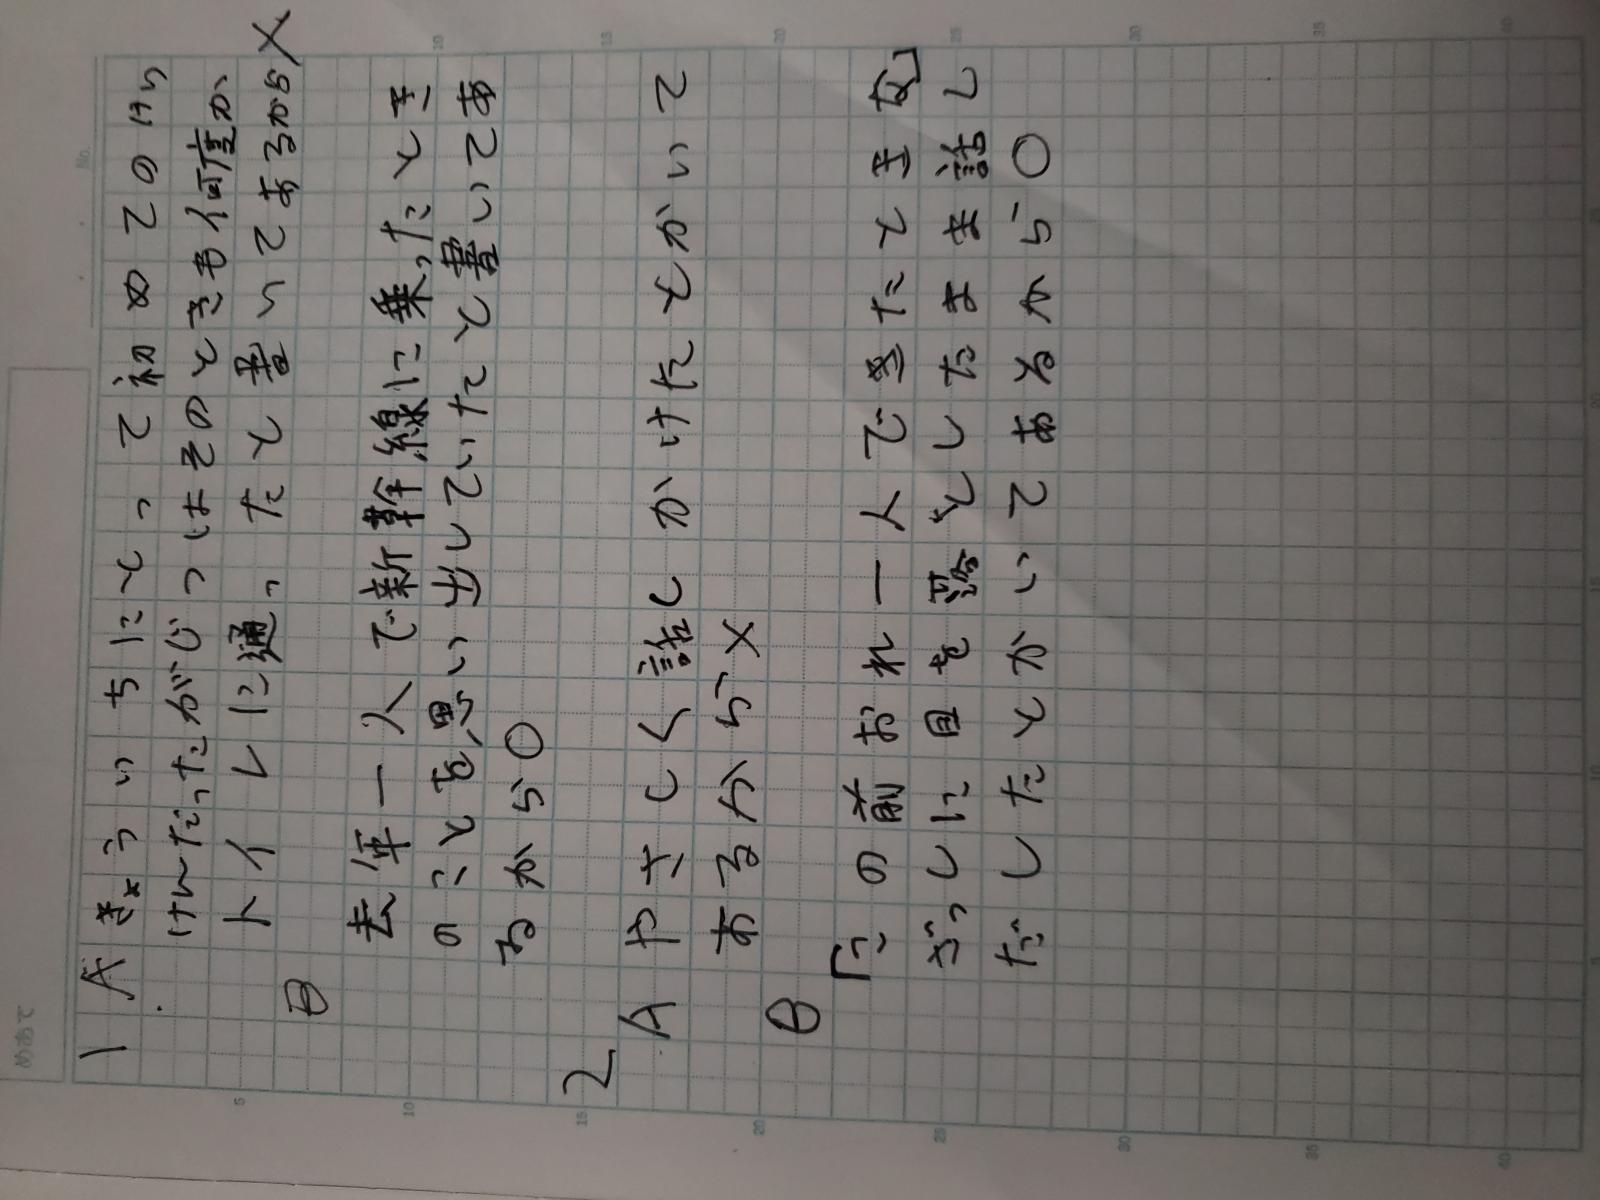 めあて
No.
1 A きょういちにとって初めてのけい
けんだったがじつはそのときも何度か
トイレに通ったと書いてあるから×
B
去年一人で新幹線に乗ったとき
のことを思い出していたと書いてあ
るから○
2
A やさしく話しかけたとかいて
あるから×
B
「この前おれ一人できたときな」
ぶっしに自を誇としたまま話し
だしたとかいてあるから○